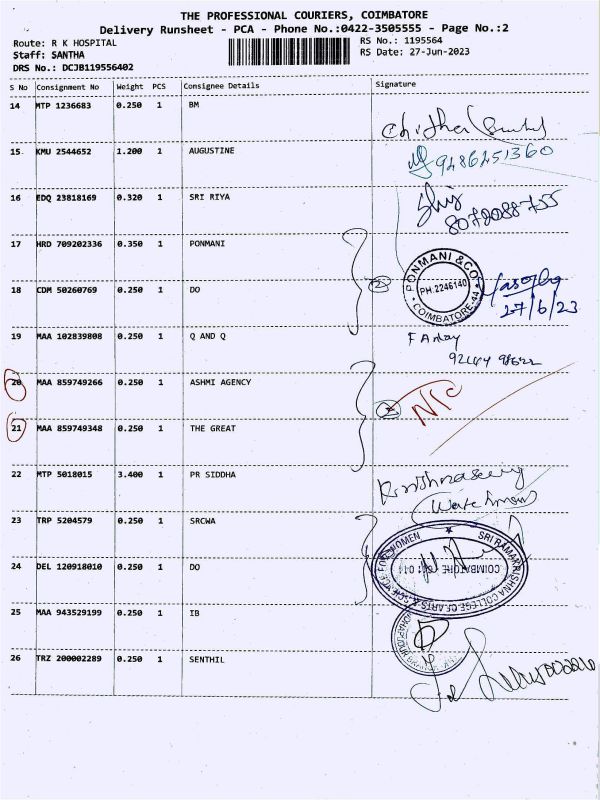 THE PROFESSIONAL COURIERS, COIMBATORE
Delivery Runsheet - PCA - Phone No.:0422-3505555 - Page No.:2
Route: R K HOSPITAL
RS No.: 1195564
Staff: SANTHA
RS Date: 27-Jun-2023
DRS No.: DCJB119556402
S No Consignment No Weight PCS Consignee Details Signature
14 MTP 1236683 0.250 1 BM
15 KMU 2544652 1.200 1 AUGUSTINE 9486251360
16 EDQ 23818169 0.320 1 SRI RIYA
8072088755
17 HRD 709202336 0.350 1 PONMANI
PONMANI & CO
PH:2246140
COIMBATORE-44
18 CDM 50260769 0.250 1 DO 2
27/6/23
19 MAA 102839808 0.250 1 Q AND Q
20 MAA 859749266 0.250 1 ASHMI AGENCY
21 MAA 859749348 0.250 1 THE GREAT
22 MTP 5018015 3.400 1 PR SIDDHA
23 TRP 5204579 0.250 1 SRCWA
SRI RAMAKRISHNA COLLEGE OF ARTS & SCIENCE FOR WOMEN
COIMBATORE
24 DEL 120918010 0.250 1 DO
25 MAA 943529199 0.250 1 IB
26 TRZ 200002289 0.250 1 SENTHIL